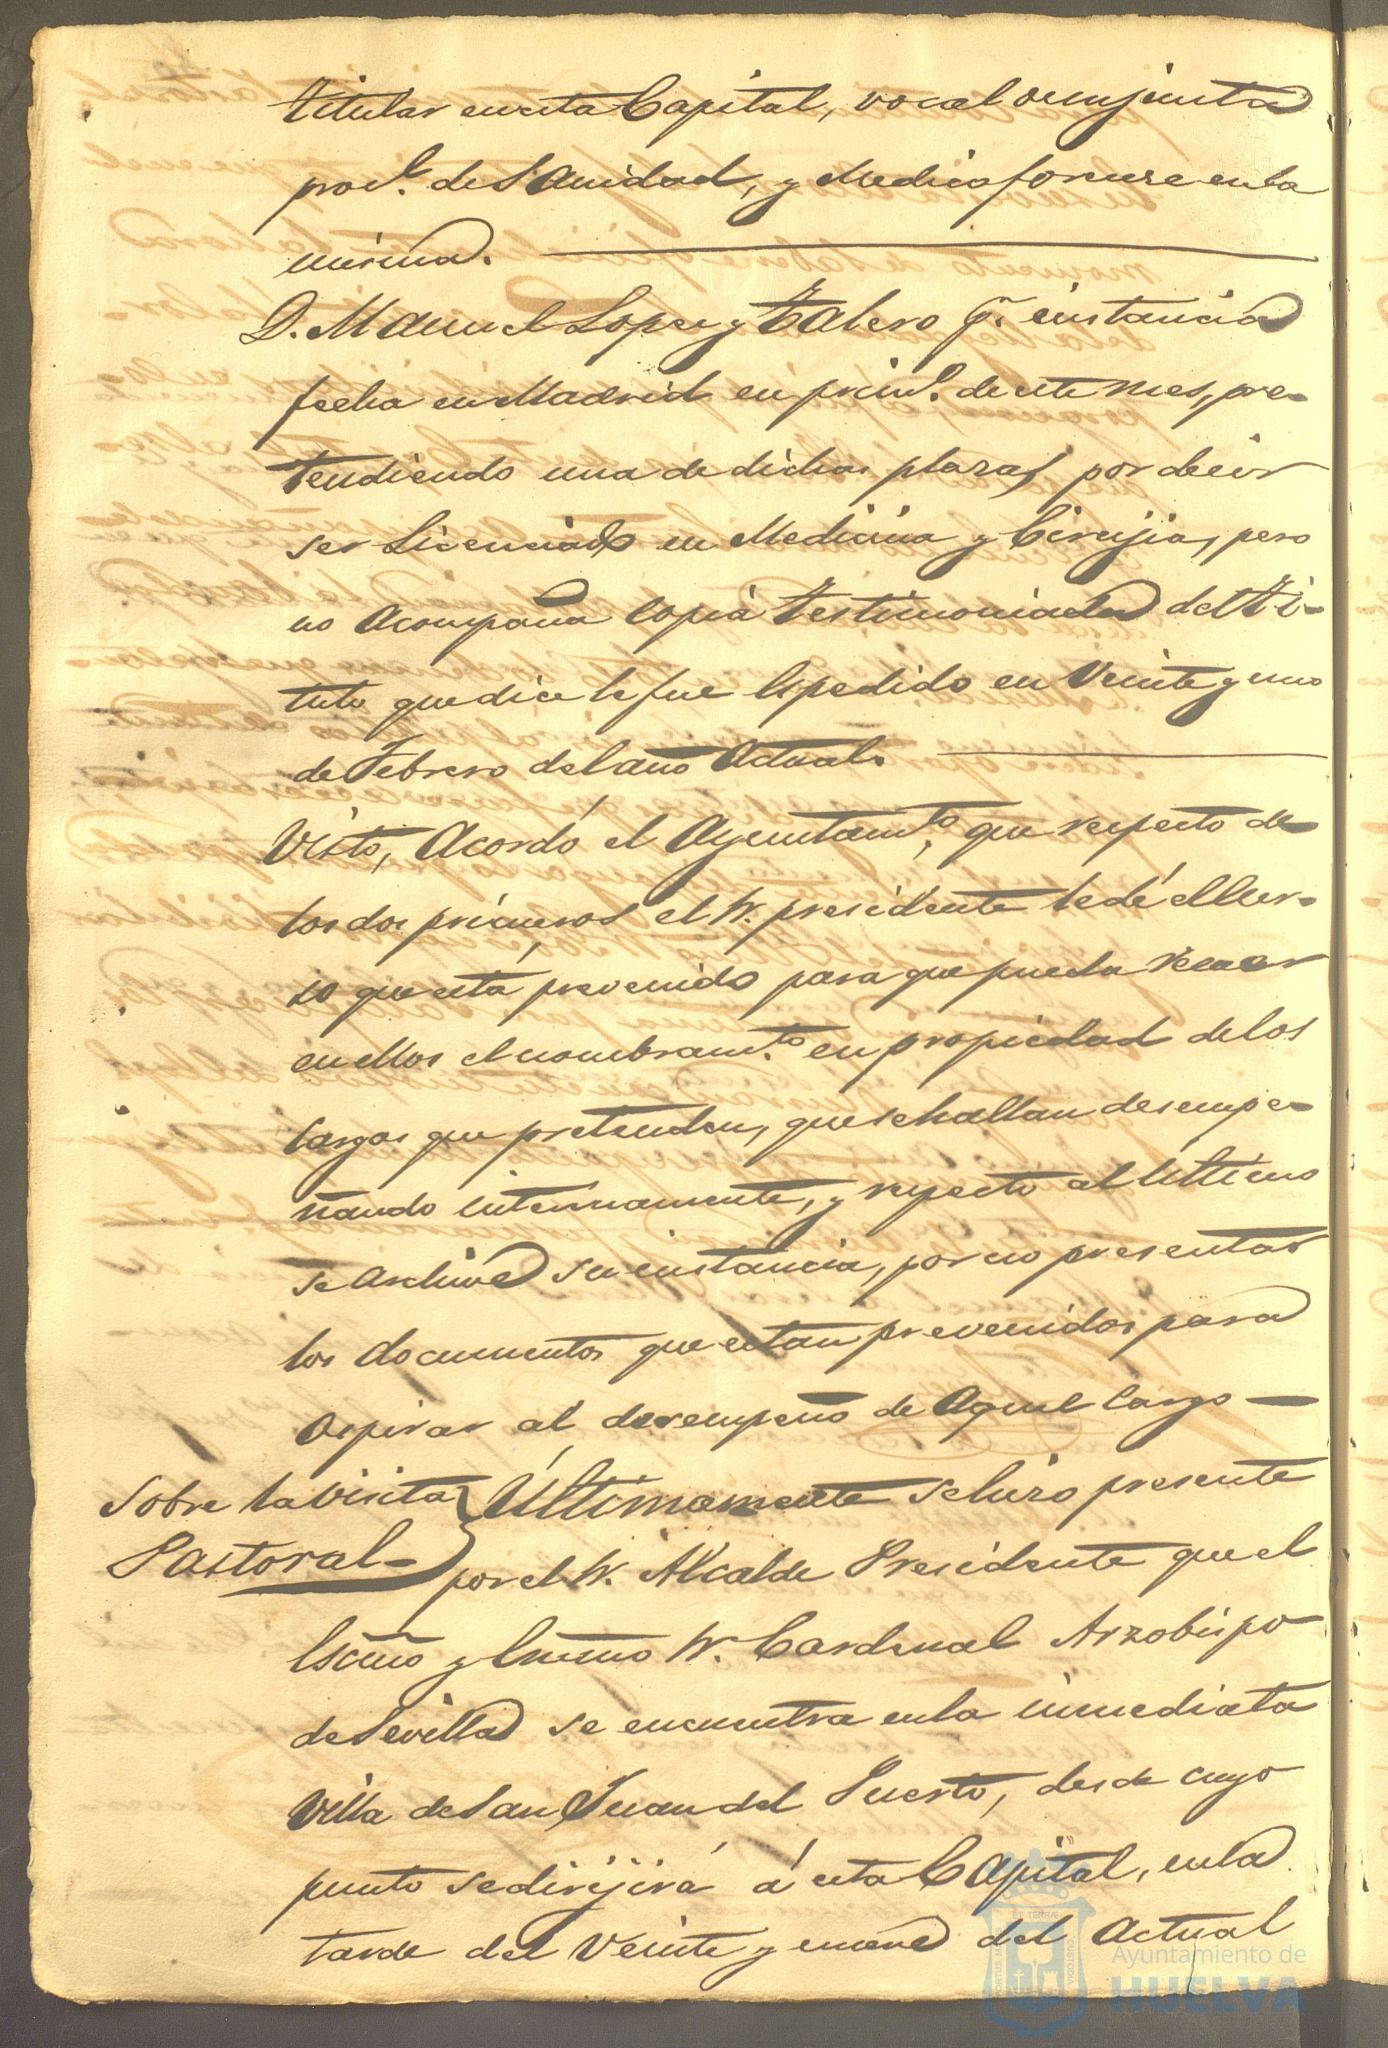 titular en esta Capital, vocal de su junta
prov.l de Sanidad, y Medico forense en la
misma.
D. Manuel Lopez y Talero p.r instancia
fecha en Madrid en prim.o de este mes, pre-
tendiendo una de dichas plazas, por decir
ser Licenciado en Medicina y Cirujia, pero
no acompaña copia testimoniada del ti-
tulo que dice le fue espedido en Veinte y uno
de Febrero del año actual.
Visto, acordó el Ayuntam.to, que respecto de
los dos primeros el Sr. presidente le dé el cur-
so que está prevenido para que pueda recaer
en ellos el nombram.to en propiedad de los
cargos que pretenden, que se hallan desempe-
ñando internamente, y respecto al ultimo
se archive su instancia, por no presentar
los documentos que estan prevenidos para
aspirar al desempeño de aquel cargo
Sobre la visita
Pastoral
Ultimamente se hizo presente
por el Sr. Alcalde Presidente que el
Escmo y Emmo Sr. Cardenal Arzobispo
de Sevilla se encuentra en la inmediata
Villa de San Juan del Puerto, desde cuyo
punto se dirijirá á esta Capital, en la
tarde del Veinte y nueve del actual
Ayuntamiento de
HUELVA